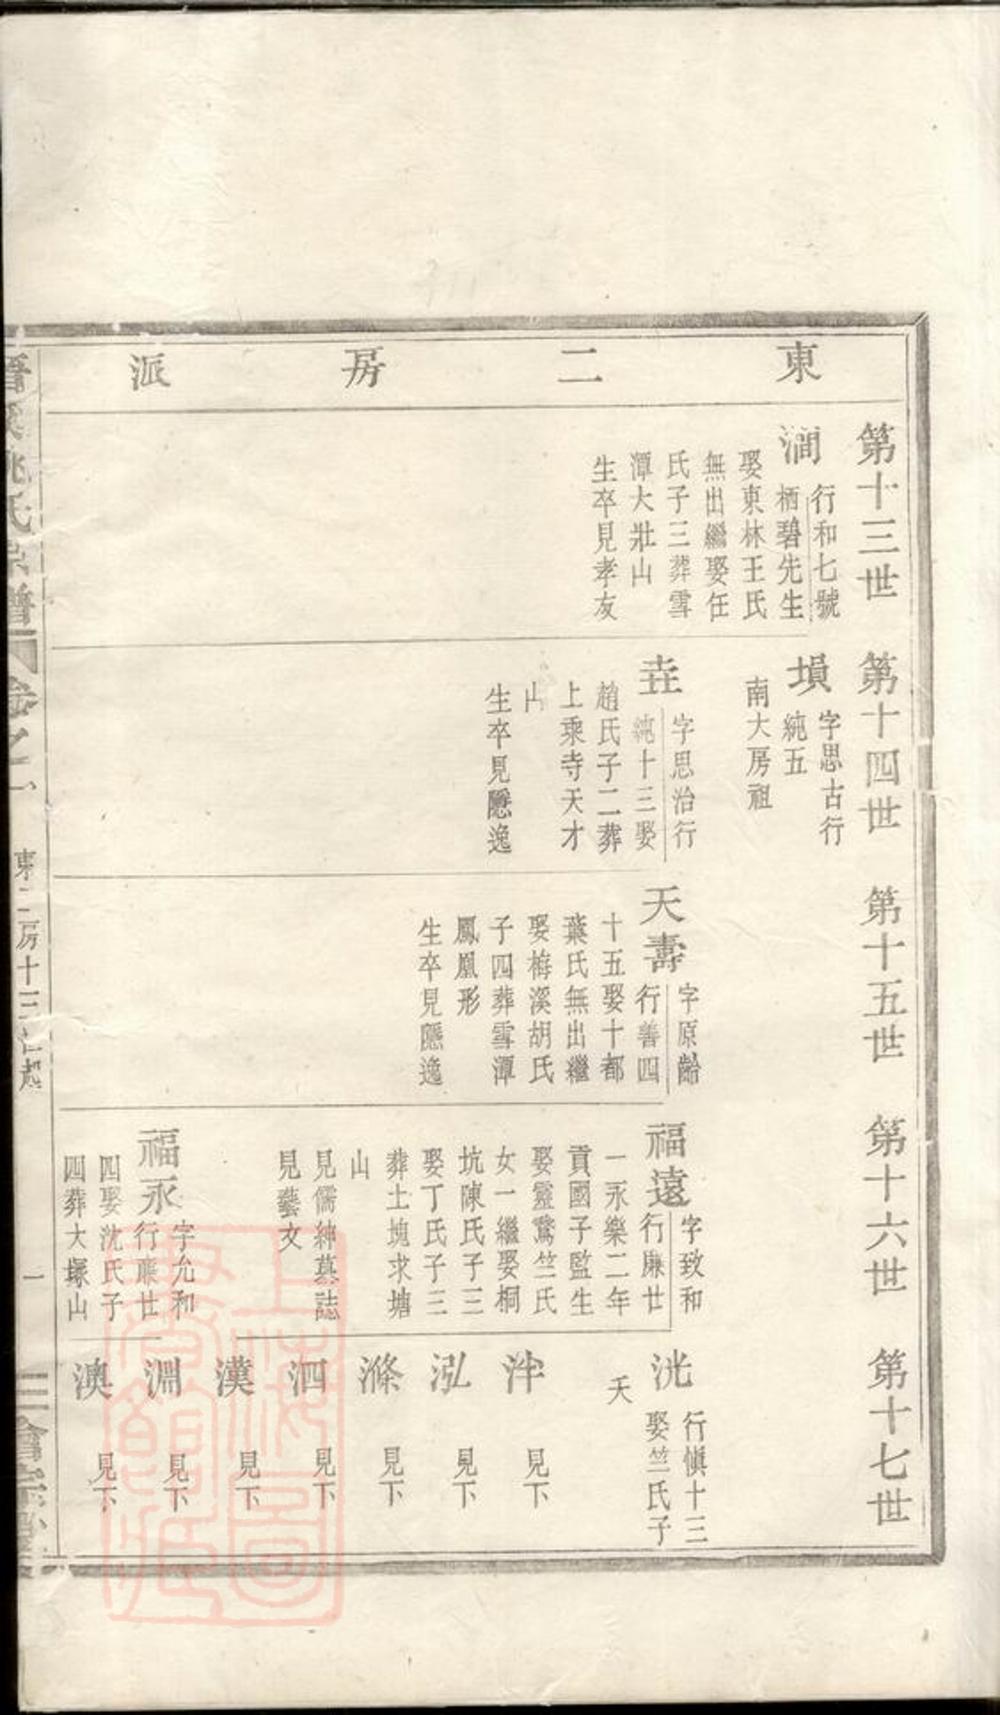 東二房派
第十三世
澗
行和七號
栖碧先生
娶東林王氏
無出繼娶任
氏子三葬雪
潭大壯山
生卒見孝友
第十四世
塤
字思古行
純五
南大房祖
垚
字思治行
純十三娶
趙氏子二葬
上乘寺天才
山
生卒見隱逸
第十五世
天壽
字原齡
行善四
十五娶十都
葉氏無出繼
娶梅溪胡氏
子四葬雪潭
鳳凰形
生卒見隱逸
第十六世
福遠
字致和
行廉廿
一永樂二年
貢國子監生
娶靈鷲竺氏
女一繼娶桐
坑陳氏子三
娶丁氏子三
葬土塊求塘
山
見儒紳墓誌
見藝文
福永
字允和
行廉廿
四娶沈氏子
四葬大塚山
第十七世
洸
行愼十三
娶竺氏子
夭
泮
見下
泓
見下
滌
見下
泗
見下
漢
見下
淵
見下
澳
見下
姚氏宗譜
卷之一
東二房十三世起
一